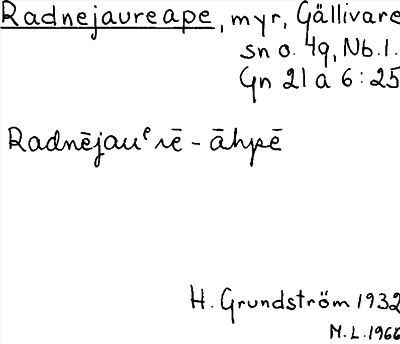 Radnejaureape, myr, Gällivare
sn o. 49, Nb. l.
Gn 21 a 6:25
Radnējauᵉrē - āhpē
H. Grundström 1932
M.L. 1966